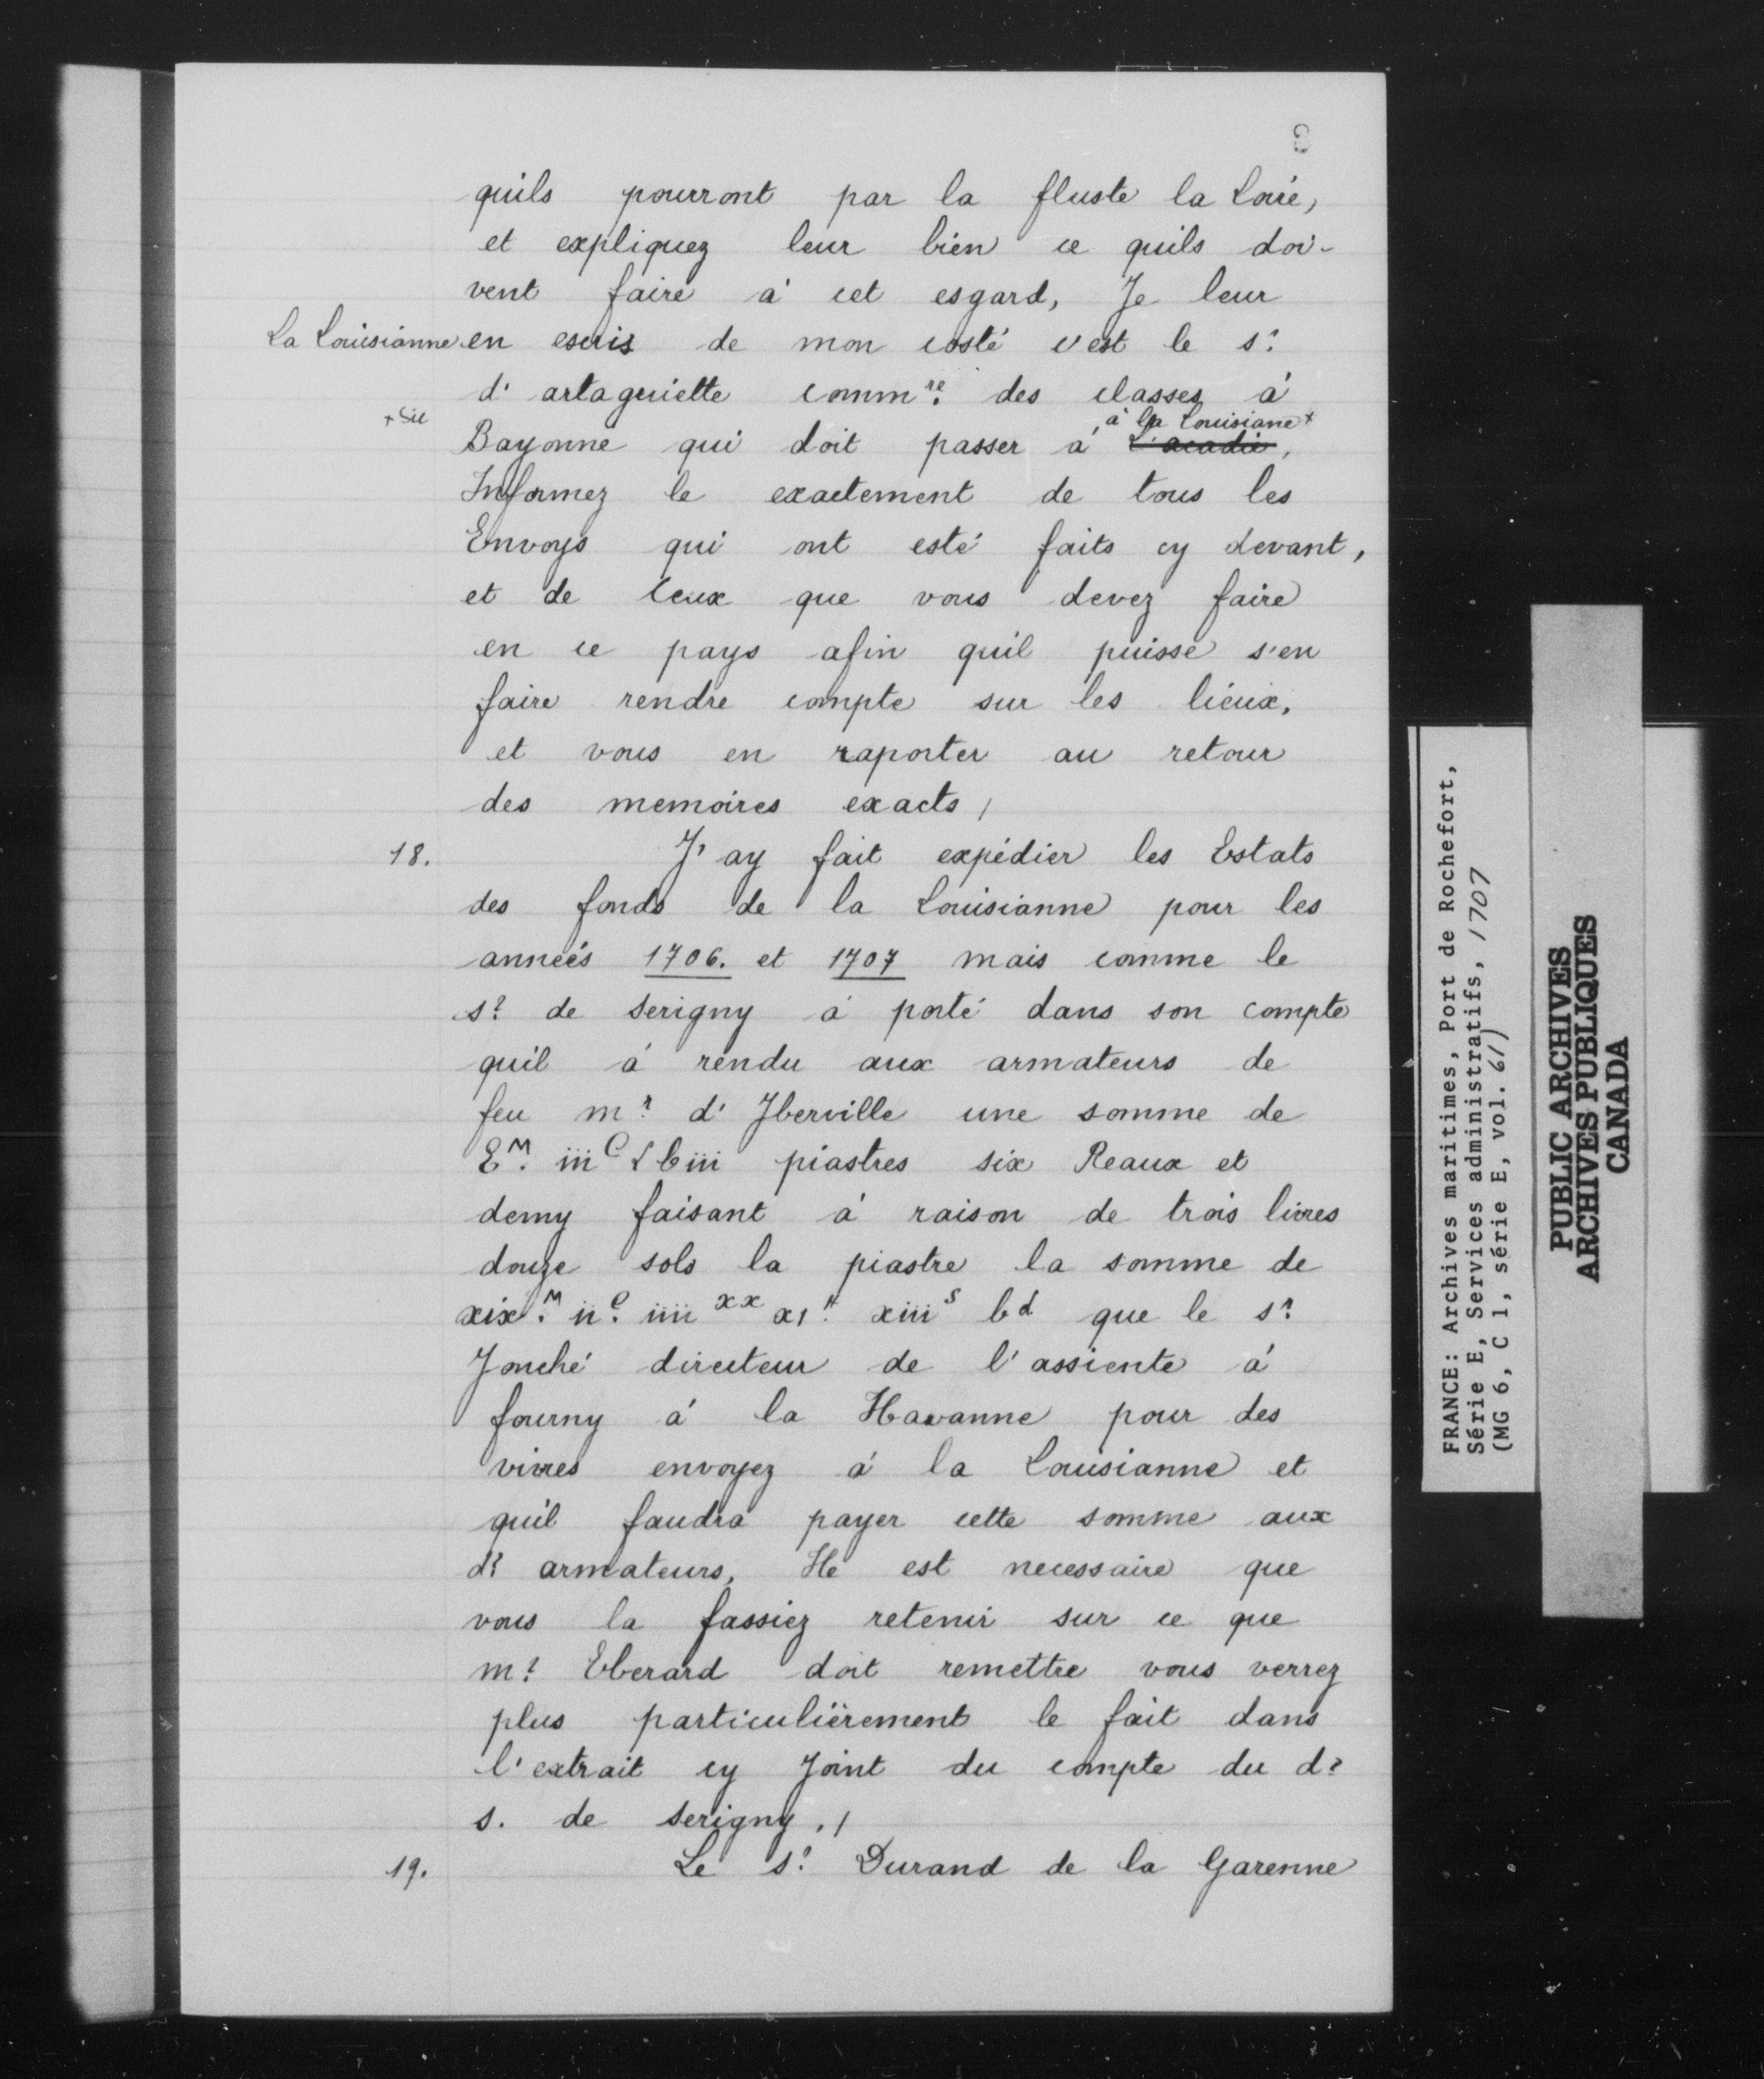 quils pourront par la fluste la Loire,
et expliquez leur bien ce quils doi-
vent faire à cet esgard, Je leur
La Louisianne en escris de mon costé c'est le s.r
d'artaguiette comm.re des classes à
+ sic
à la Louisiane +
Bayonne qui doit passer à L'acadie,
Informez le exactement de tous les
Envoys qui ont esté faits cy devant,
et de Ceux que vous devez faire
en ce pays afin quil puisse s'en
faire rendre compte sur les lieux,
et vous en raporter au retour
des memoires exacts /
18. J'ay fait expédier les Estats
des fonds de la Louisianne pour les
années 1706. et 1707 mais comme le
s.r de Serigny à porté dans son compte
quil à rendu aux armateurs de
feu m.r d'Iberville une somme de
EM. iiiC Lbiii piastres six Reaux et
demy faisant à raison de trois livres
douze sols la piastre la somme de
xixM. iiC. iiiixx xi# xiiis bd que le s.r
Jonché directeur de l'assiente à
fourny à la Havanne pour des
vivres envoyez à la Louisianne et
quil faudra payer cette somme aux
d.s armateurs, Il est necessaire que
vous la fassiez retenir sur ce que
m.r Eberard doit remettre vous verrez
plus particulièrement le fait dans
l'extrait cy Joint du compte du d.t
s. de Serigny ./
19. Le s.r Durand de la Garenne
FRANCE: Archives maritimes, Port de Rochefort,
Série E, Services administratifs, 1707
(MG 6, C 1, série E, vol. 611)
PUBLIC ARCHIVES
ARCHIVES PUBLIQUES
CANADA